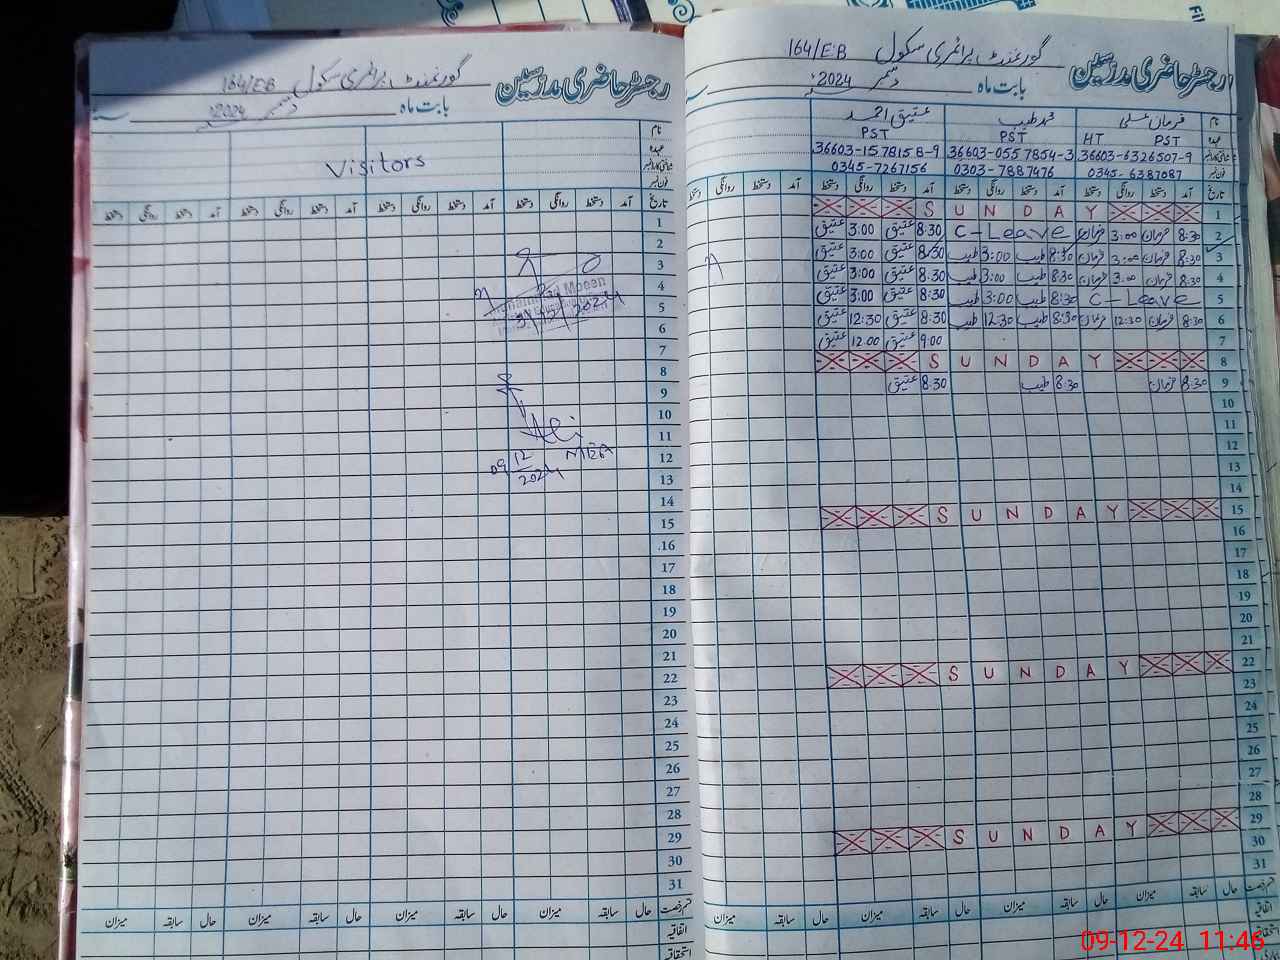 رجسٹر حاضری مدرسین گورنمنٹ پرائمری سکول 164/EB
بابت ماہ دسمبر 2024
نام فرمان علی محمد طیب عتیق احمد
عہدہ HT PST PST PST
شناختی کارڈ نمبر 36603-6326507-9 36603-0557854-3 36603-1578158-9
فون نمبر 0345-6387087 0303-7887476 0345-7267156
تاریخ آمد دستخط روانگی دستخط آمد دستخط روانگی دستخط آمد دستخط روانگی دستخط آمد دستخط روانگی دستخط
1 SUNDAY
2 8:30 فرمان 3:00 فرمان C-Leave 8:30 عتیق 3:00 عتیق
3 8:30 فرمان 3:00 فرمان 8:30 طیب 3:00 طیب 8:30 عتیق 3:00 عتیق
4 8:30 فرمان 3:00 فرمان 8:30 طیب 3:00 طیب 8:30 عتیق 3:00 عتیق
5 C-Leave 8:30 طیب 3:00 طیب 8:30 عتیق 3:00 عتیق
6 8:30 فرمان 12:30 فرمان 8:30 طیب 12:30 طیب 8:30 عتیق 12:30 عتیق
7 9:00 عتیق 12:00 عتیق
8 SUNDAY
9 8:30 فرمان 8:30 طیب 8:30 عتیق
10
11
12
13
14
15 SUNDAY
16
17
18
19
20
21
22 SUNDAY
23
24
25
26
27
28
29 SUNDAY
30
31
قسم رخصت حال سابقہ میزان حال سابقہ میزان حال سابقہ میزان حال سابقہ میزان
اتفاقیہ
استحقاقیہ
رجسٹر حاضری مدرسین گورنمنٹ پرائمری سکول 164/EB
بابت ماہ دسمبر 2024
نام
عہدہ
شناختی کارڈ نمبر
Visitors
فون نمبر
تاریخ آمد دستخط روانگی دستخط آمد دستخط روانگی دستخط آمد دستخط روانگی دستخط آمد دستخط روانگی دستخط
1
2
3
4
5
6
7
8
9
10
11
12
13
14
15
16
17
18
19
20
21
22
23
24
25
26
27
28
29
30
31
3/12/2024
MEA
09/12/2024
قسم رخصت حال سابقہ میزان حال سابقہ میزان حال سابقہ میزان حال سابقہ میزان
اتفاقیہ
استحقاقیہ
09-12-24 11:46